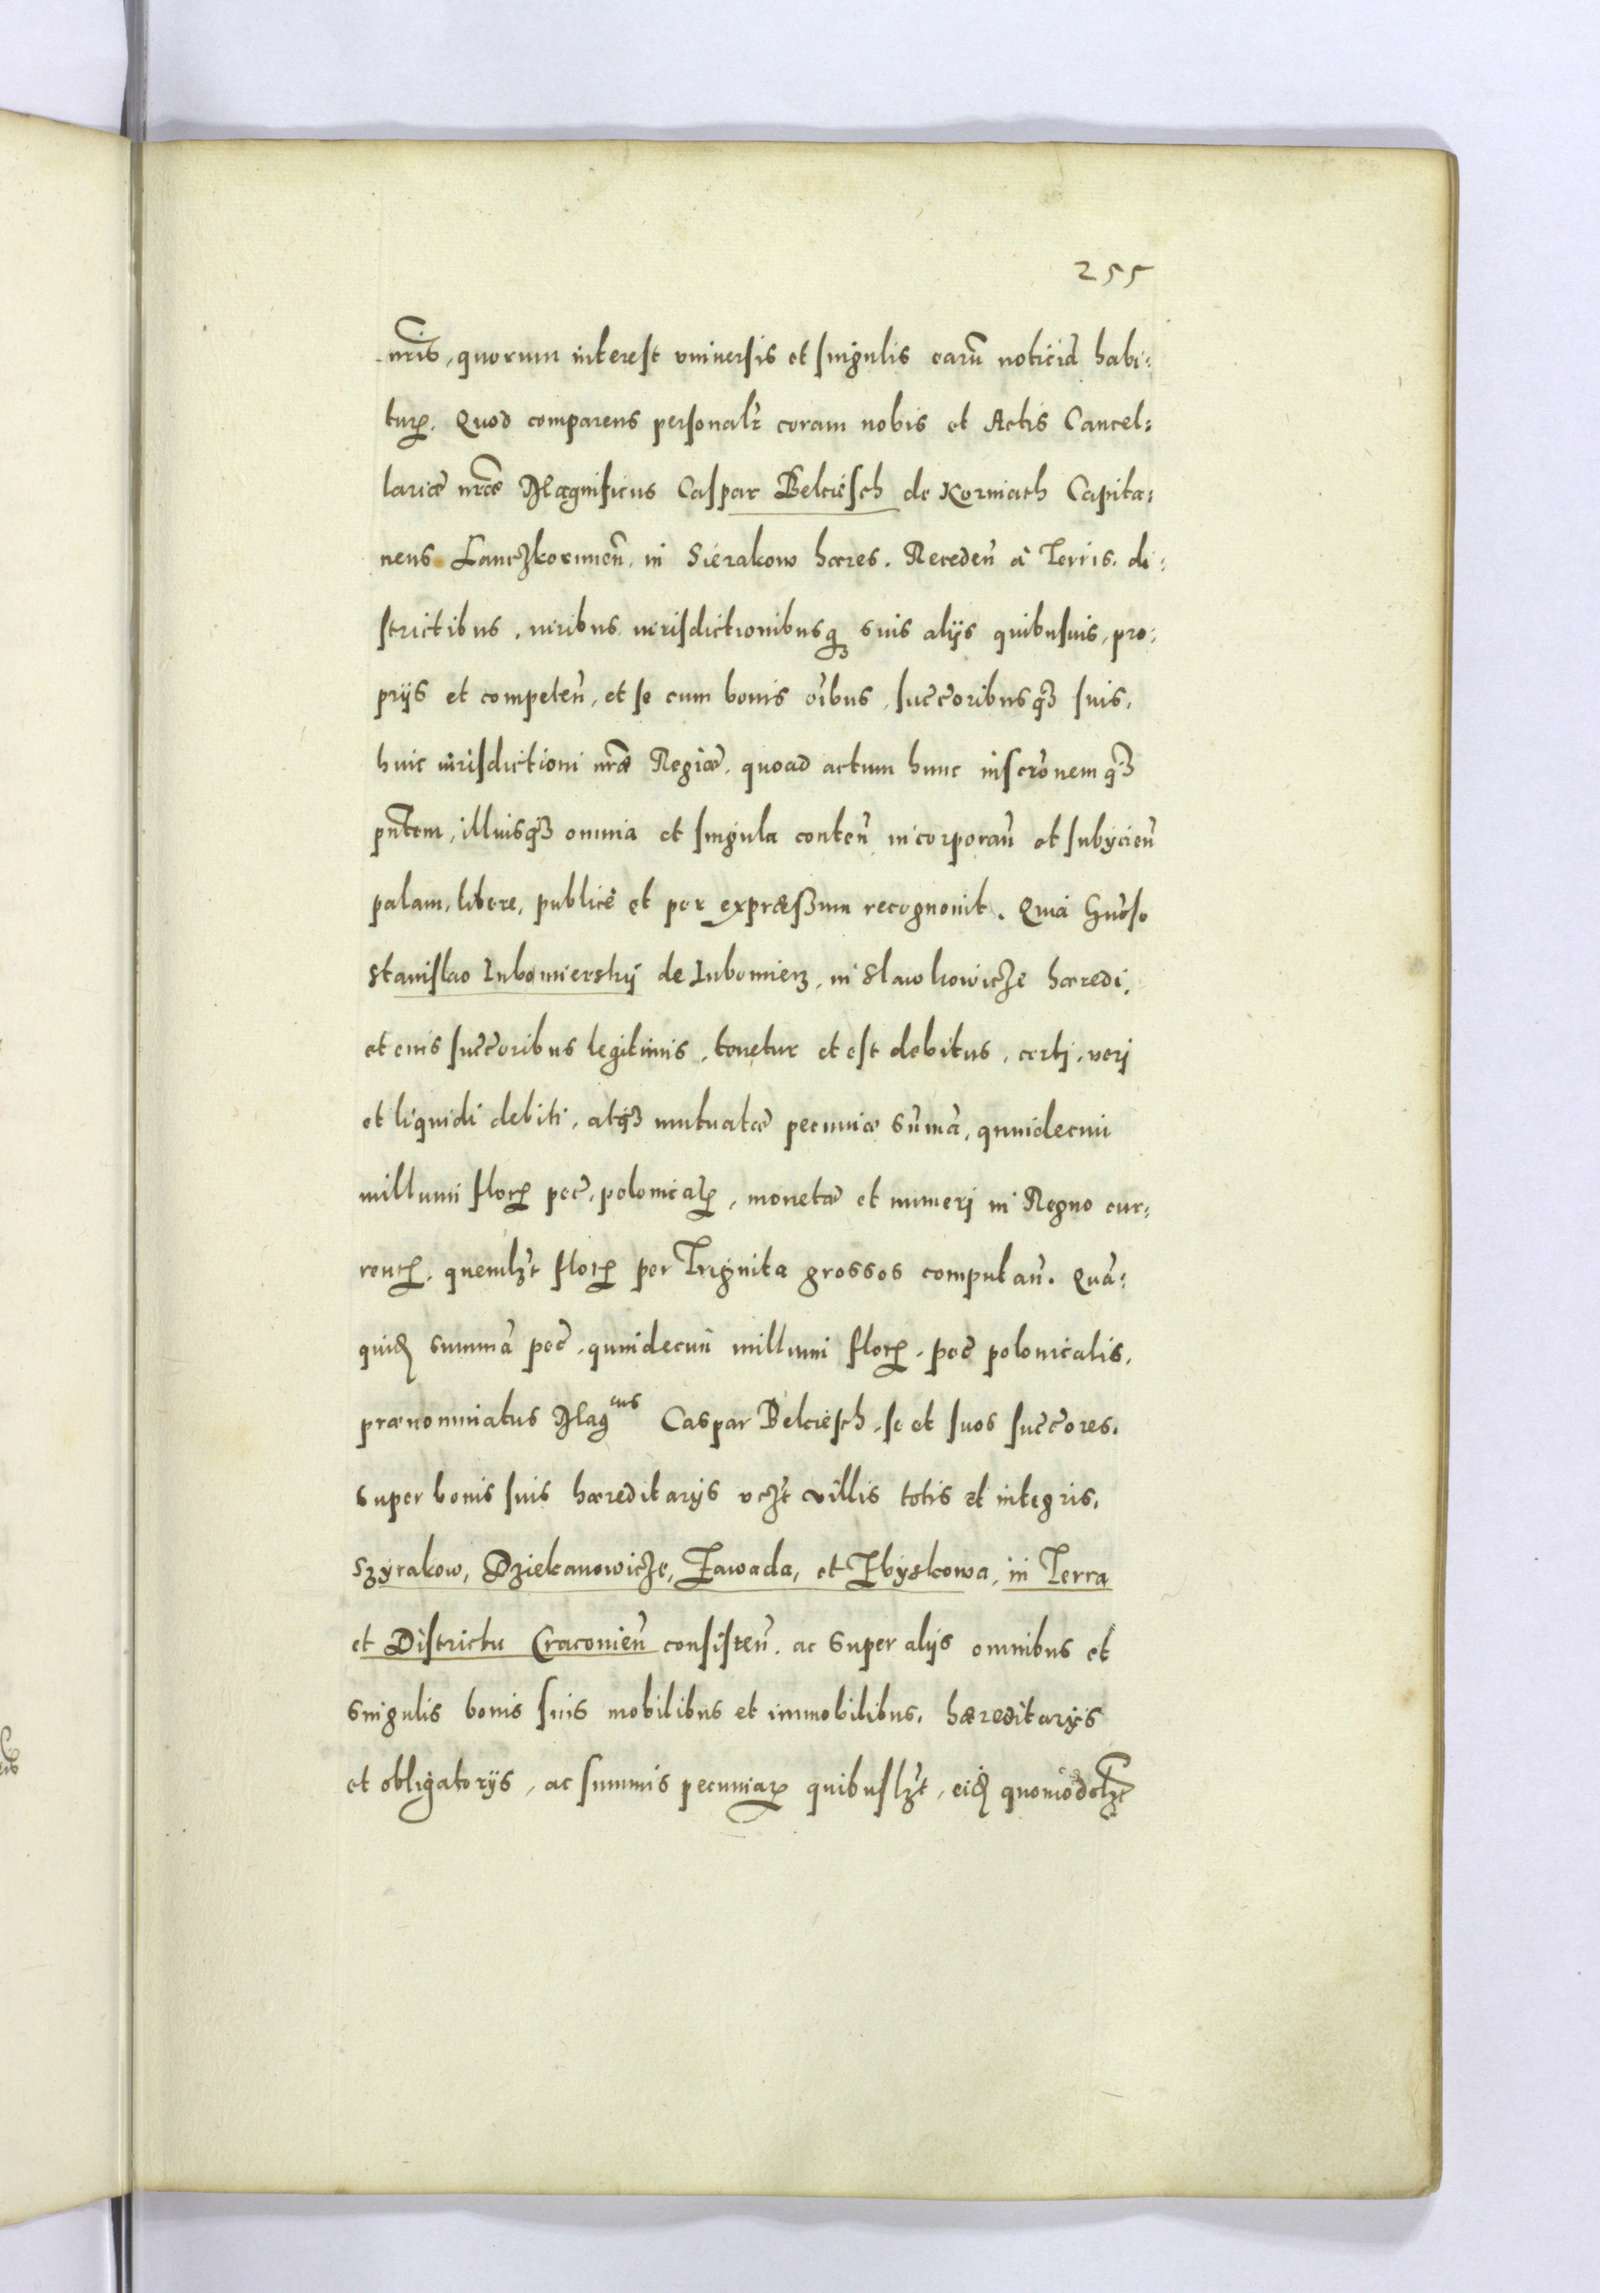 255
nr̃is, quorum interest vniuersis et singulis earũ noticiã habi:
turꝝ. Quod comparens personalr̃ coram nobis et Actis Cancel:
lariæ nr̃æ Magnificus Caspar Belciesch de Korniath Capita:
neus Lanczkorunen̄. in Sierakow hæres. Receden̄ à Terris. di:
strictibus, iuribus iurisdictionibusq₃ suis alijs quibusuis, pro:
prijs et competen̄, et se cum bonis oĩbus, successoribusq₃ suis,
huic iurisdictioni nr̃æ Regiæ. quoad actum hunc inscrõnem q₃
pñtem, illiusq₃ omnia et singula conten̄ incorporan̄ et subijcien̄
palam, libere, publicè et per expræssum recognouit. Quià Gñoso
Stanislao Lubomierskij de Lubomierz, in Slawkowicze hæredi,
et eius successoribus legitimis, tenetur et est debitus, certj, verj
et liquidi debiti, atq₃ mutuatæ pecuniæ sum̃ã, quindecim
millium florꝝ pec̃. polonicalꝝ, monetæ et numerj in Regno cur:
rentꝝ, quemlꝫt florꝝ per Triginta grossos computan̄. Quã:
quid summã pec̃. quindecim millium florꝝ. pec̃ polonicalis,
prænominatus Mag^cus Caspar Belciesch, se et suos successores,
super bonis suis hæreditarijs vcꝫt villis totis et integris,
Szyrakow, Dziekanowicze, Zawada, et Zbyskowa, in Terra
et Districtu Cracouien̄ consisten̄. ac super alijs omnibus et
singulis bonis suis mobilibus et immobilibus, hæreditarijs
et obligatorijs, ac summis pecuniarꝝ quibuslꝫt, eid quomodolꝫt